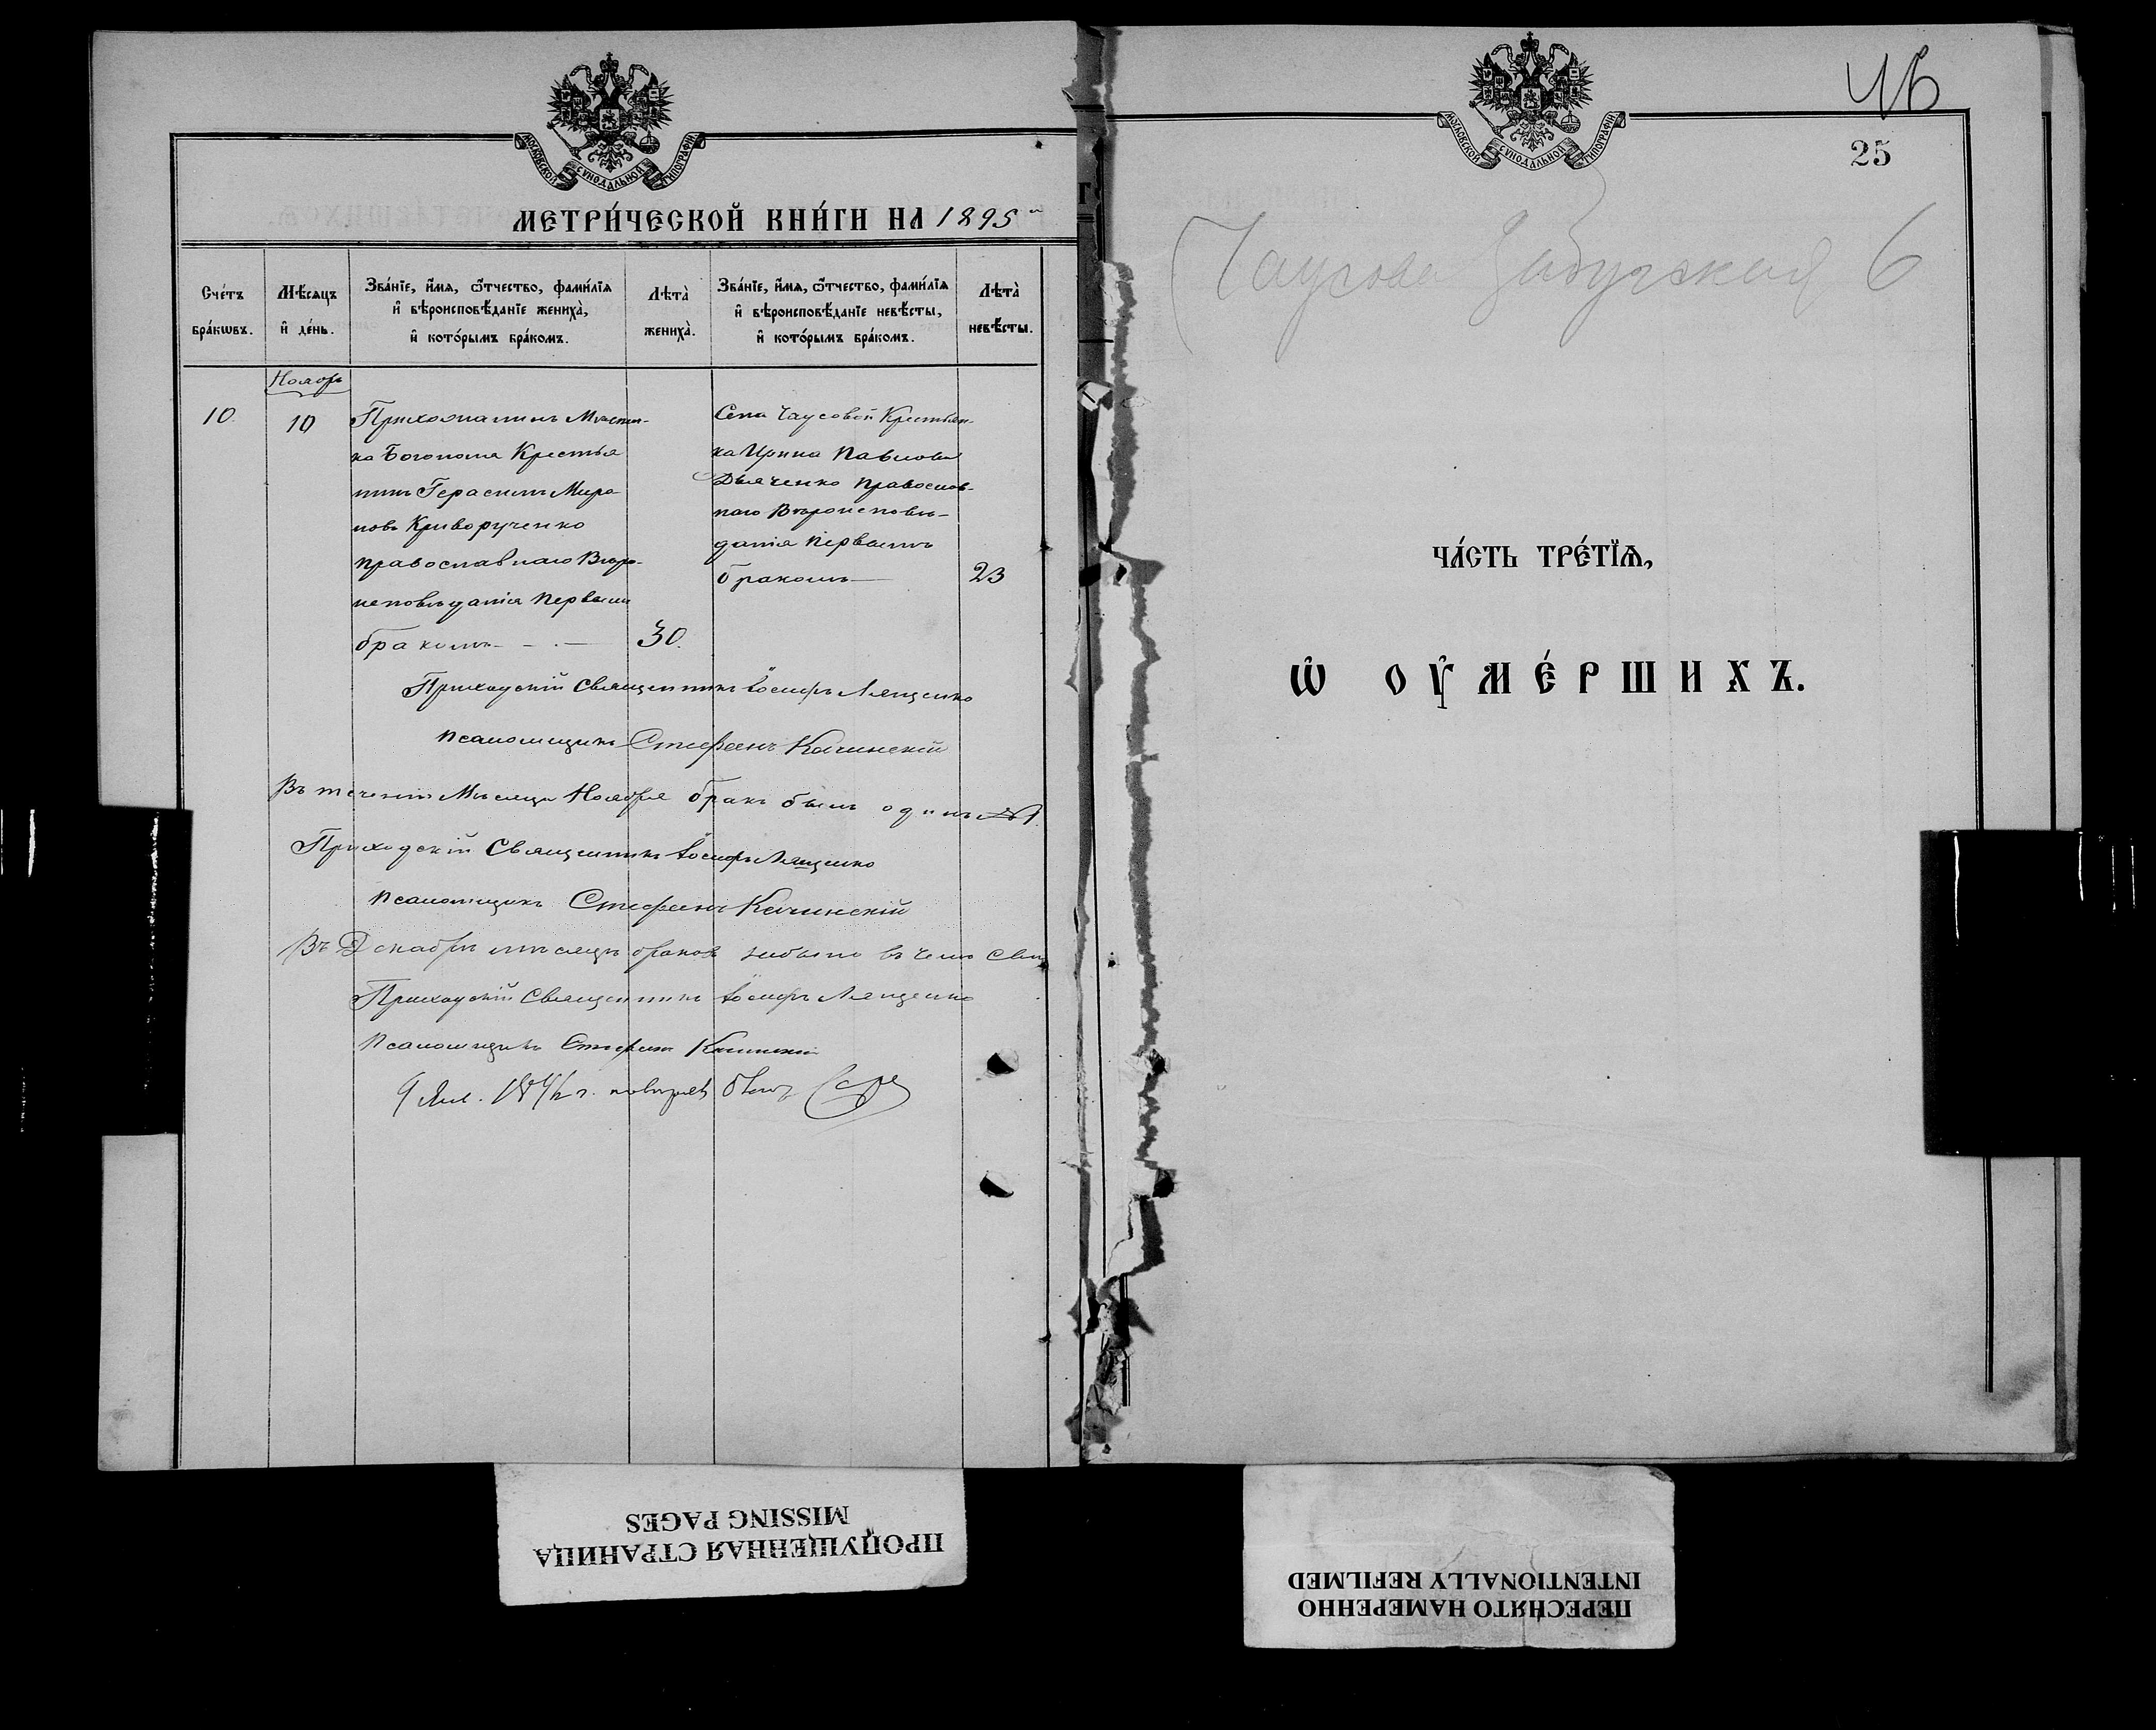 МОСКОВСКОЙ СУНОДАЛЬНОЙ ТИПОГРАФІИ
МЕТРИ́ЧЕСКОЙ КНИ́ГИ НА 1895
Сче́тъ бра́кωвъ.
Мѣ́сяцъ и҆ де́нь.
Зва́нїе, и҆́мѧ, ѿ́чество, фами́лїѧ и҆ вѣроисповѣ́данїе жениха̀, и҆ кото́рымъ бра́комъ.
Лѣта̀ жениха̀.
Зва́нїе, и҆́мѧ, ѿ́чество, фами́лїѧ и҆ вѣроисповѣ́данїе невѣ́сты, и҆ кото́рымъ бра́комъ.
Лѣта̀ невѣ́сты.
Ноябрь
10.
10
Прихожанинъ Мѣстеч-
ка Богополя Крестья
нинъ Герасимъ Миро
новъ Криворученко
православнаго Вѣро-
исповѣданія первымъ
бракомъ
30.
Села Чаусовой Крестьян-
ка Ирина Павлова
Дьяченко православ-
наго Вѣроисповѣ-
данія первымъ
бракомъ
23
Приходскій Священникъ Іосифъ Лященко
Псаломщикъ Стефанъ Качинскій
Въ теченіи Мѣсяца Ноября бракъ былъ одинъ №1.
Приходскій Священникъ Іосифъ Лященко
Псаломщикъ Стефанъ Качинскій
Въ Декабрѣ мѣсяцѣ браковъ небыло въ чемъ
Приходскій Священникъ Іосифъ Лященко
Псаломщикъ Стефанъ Качинскій
9 Янв.
46
МОСКОВСКОЙ СУНОДАЛЬНОЙ ТИПОГРАФІИ
25
Чаусова Забугская 6
ЧА́СТЬ ТРЕ́ТЇѦ,
Ѽ ОУ҆МЕ́РШИХЪ.
ПРОПУЩЕННАЯ СТРАНИЦА
MISSING PAGES
ПЕРЕСНЯТО НАМЕРЕННО
INTENTIONALLY REFILMED